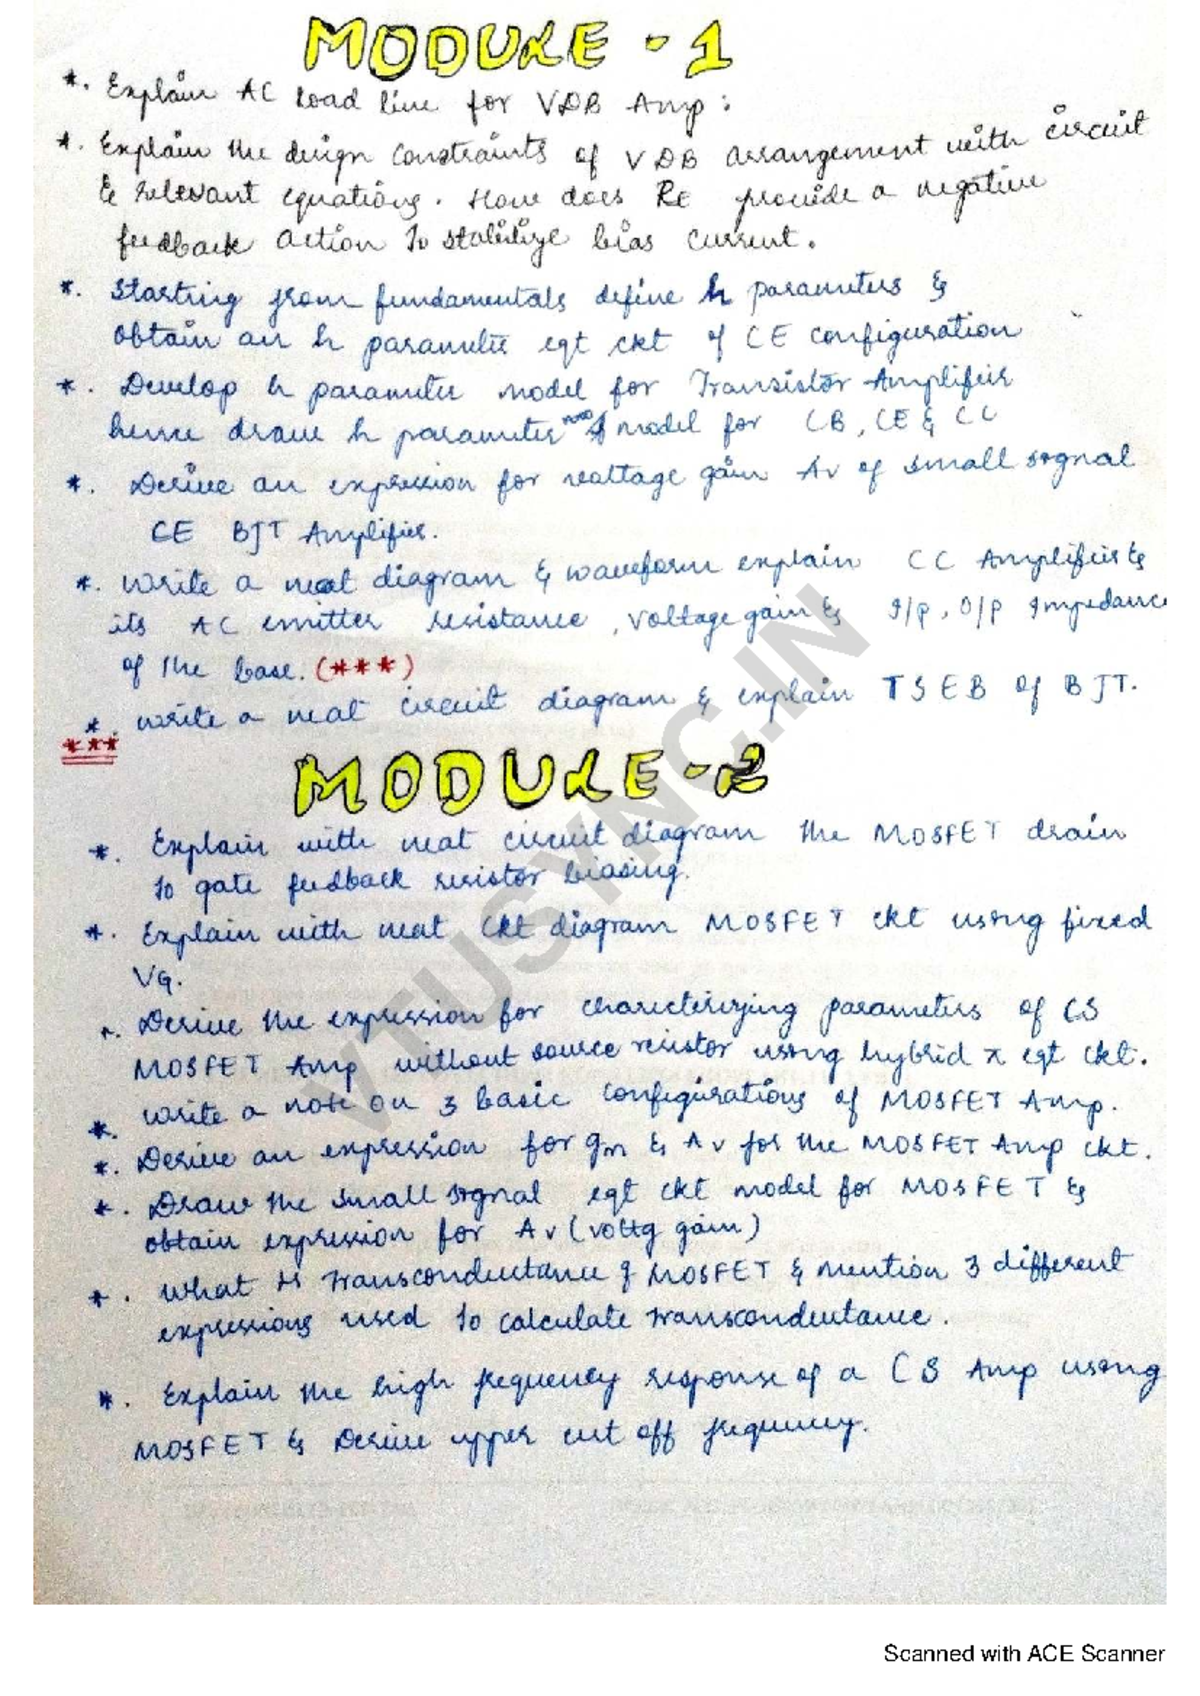 MODULE - 1
*. Explain AC load line for VDB Amp :
*. Explain the design constraints of VDB arrangement with circuit
& relevant equations. How does RE provide a negative
feedback action to stabilize bias current.
*. Starting from fundamentals define h parameters &
obtain an h parameter eqt ckt of CE configuration
*. Develop h parameter model for Transistor Amplifier
hence draw h parameter model for CB, CE & CC
*. Derive an expression for voltage gain Av of small signal
CE BJT Amplifier.
*. Write a neat diagram & waveform explain CC Amplifier &
its AC emitter resistance, voltage gain & I/p, O/p Impedance
of the base. (***)
*. Write a neat circuit diagram & explain TSEB of BJT.
***
MODULE - 2
*. Explain with neat circuit diagram the MOSFET drain
to gate feedback resistor biasing.
*. Explain with neat ckt diagram MOSFET ckt using fixed
VG.
*. Derive the expression for characterizing parameters of CS
MOSFET Amp without source resistor using hybrid π eqt ckt.
*. Write a note on 3 basic configurations of MOSFET Amp.
*. Derive an expression for gm & Av for the MOSFET Amp ckt.
*. Draw the small signal eqt ckt model for MOSFET &
obtain expression for Av (voltg gain)
*. What is transconductance of MOSFET & mention 3 different
expressions used to calculate transconductance.
*. Explain the high frequency response of a CS Amp using
MOSFET & Derive upper cut off frequency.
VTUSYNC.IN
Scanned with ACE Scanner